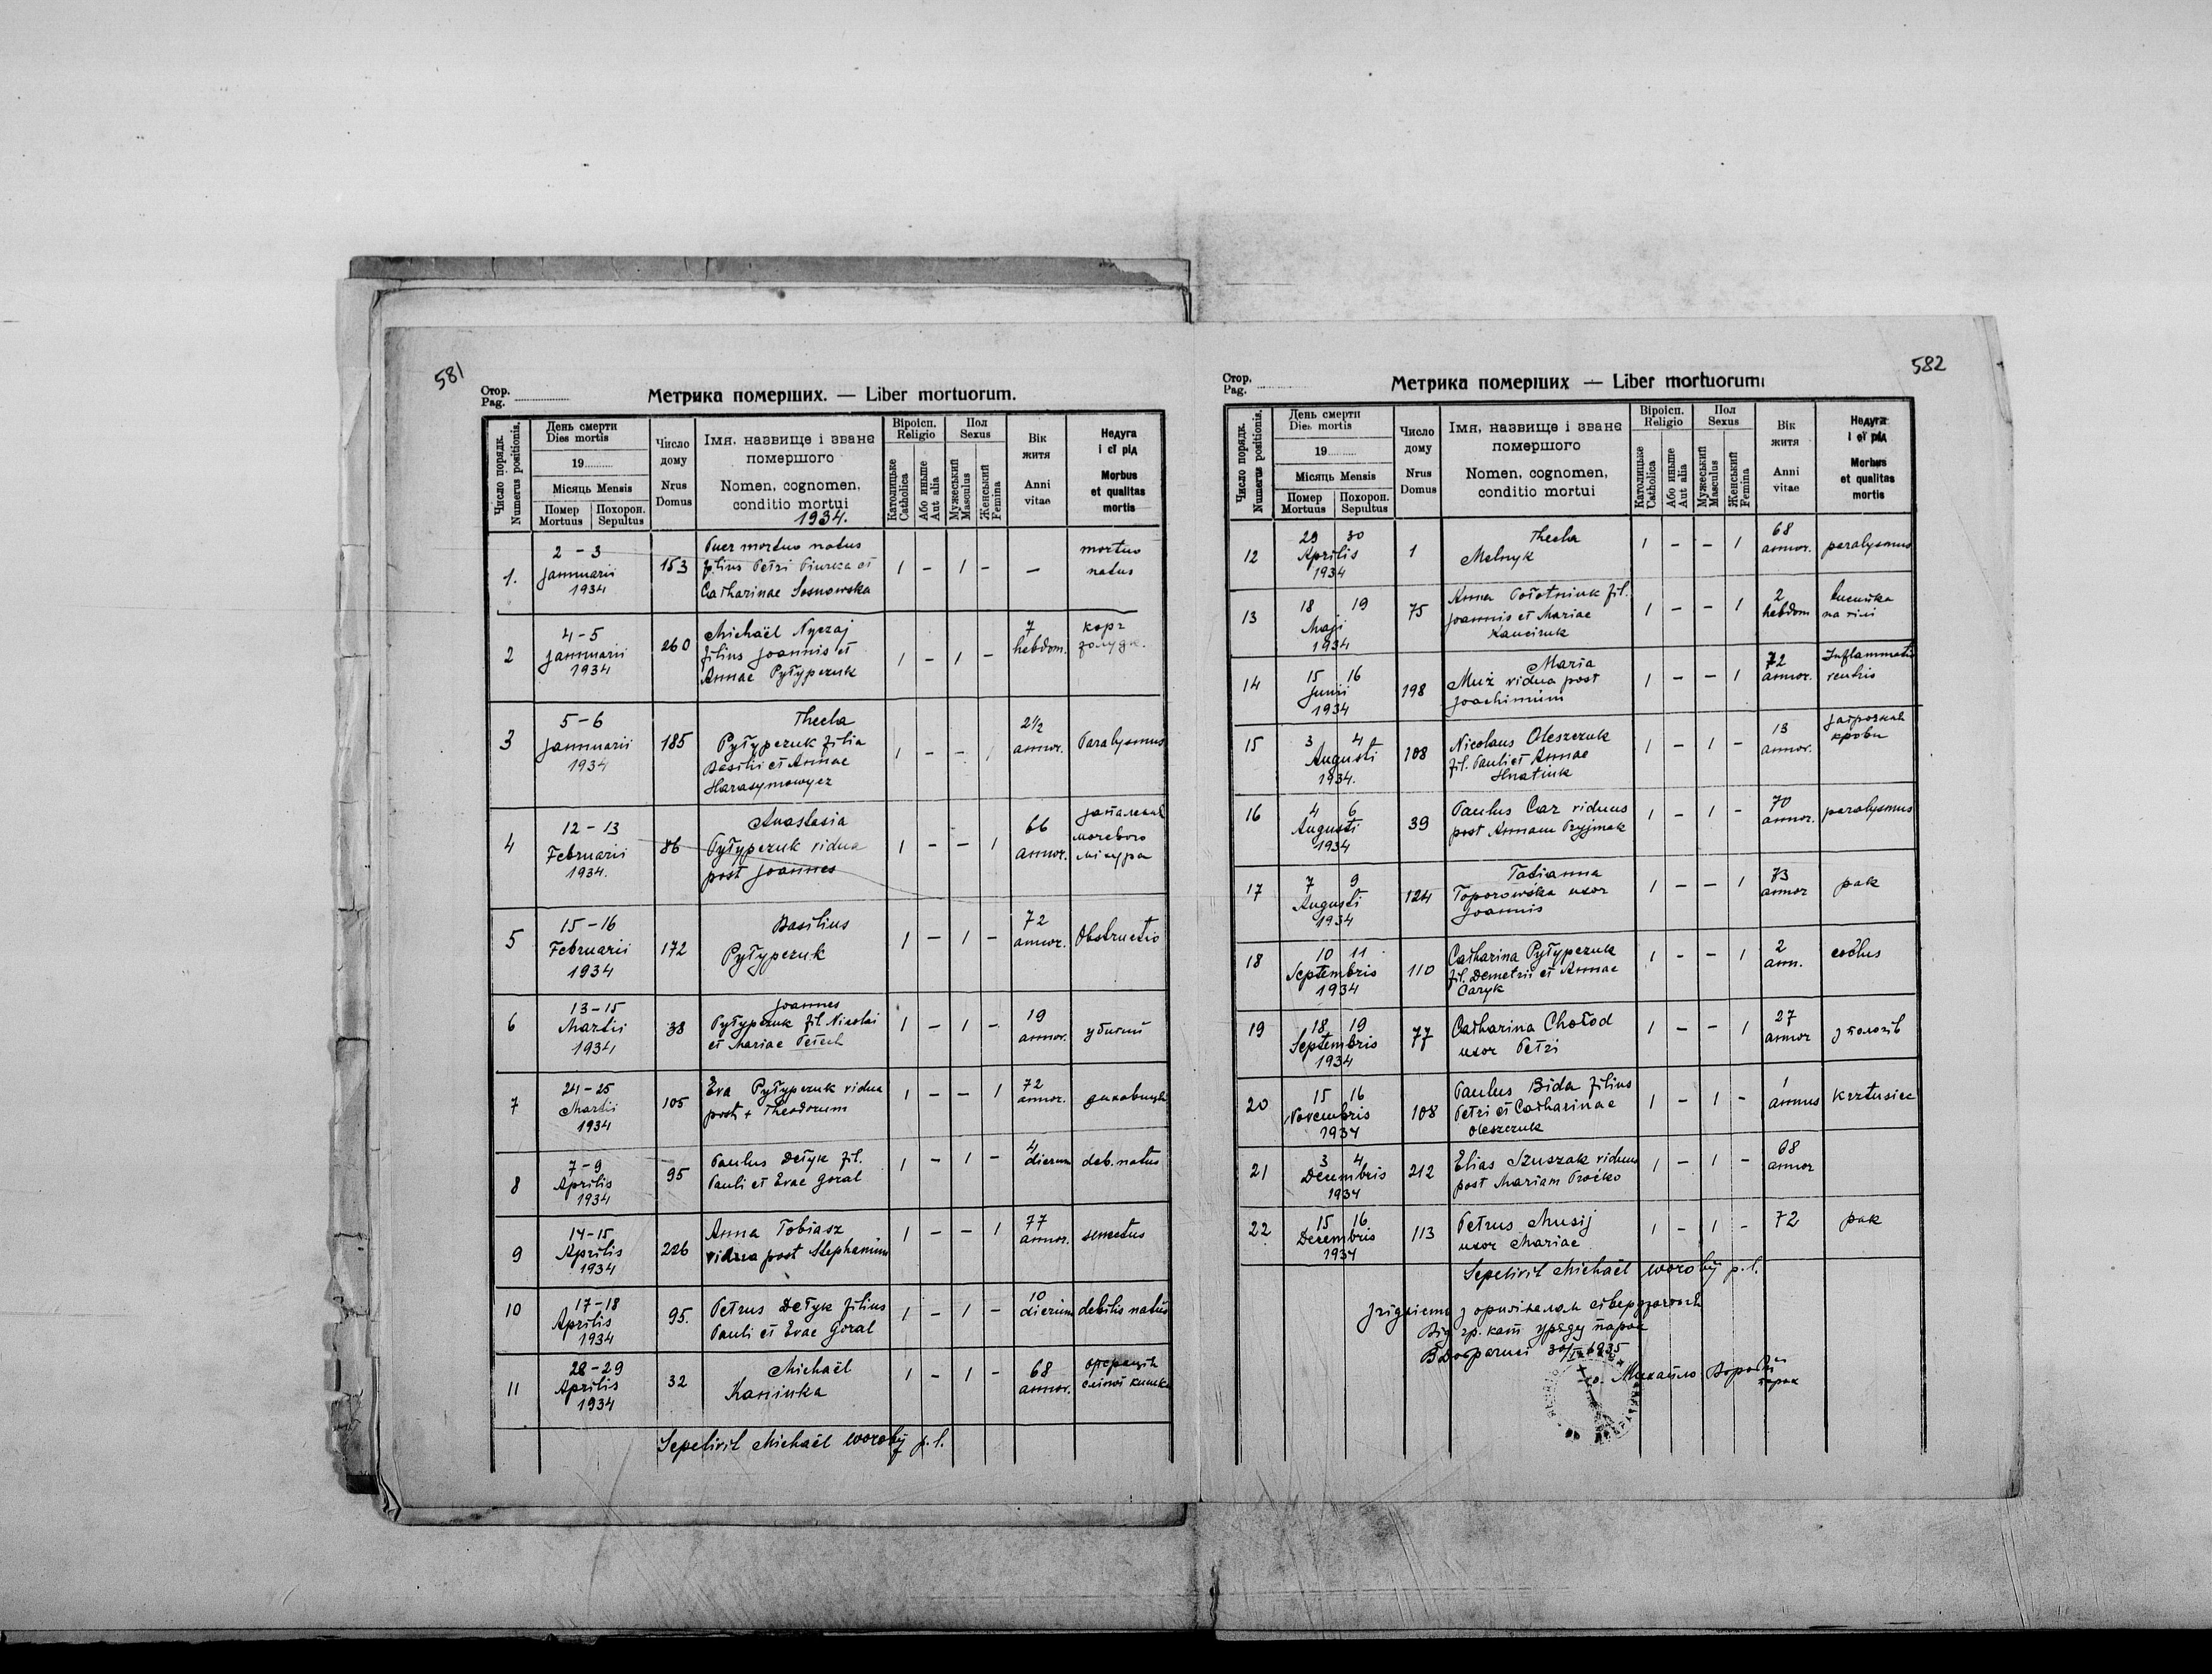 581
Стор.
Pag.
Метрика померших. — Liber mortuorum.
Число порядк.
Numerus positionis.
День смерти
Dies mortis
19
Місяць Mensis
Помер
Mortuus
Похорон.
Sepultus
Число
дому
Nrus
Domus
Імя, назвище і званє
помершого
Nomen, cognomen,
conditio mortui
1934.
Віроісп.
Religio
Католицьке
Catholica
Або иньше
Aut alia
Пол
Sexus
Мужеський
Masculus
Женський
Femina
Вік
житя
Anni
vitae
Недуга
і єї рід
Morbus
et qualitas
mortis
1.
2 - 3
Januarii
1934
153
Puer mortuo natus
filius Petri Piurka et
Catharinae Sosnowska
1 - 1 -
-
mortuo
natus
2
4-5
Januarii
1934
260
Michaël Nyczaj
filius Joannis et
Annae Pyłypczuk
1 - 1 -
7
hebdom.
корч
3
5-6
Januarii
1934
185
Thecla
Pyłypczuk filia
Basilii et Annae
Harasymowycz
1 - - 1
2½
annor.
Paralysmus
4
12-13
Februarii
1934.
86
Anastasia
Pyłypczuk vidua
post Joannes
1 - - 1
66
annor.
запалення
мочевого
міхура
5
15-16
Februarii
1934
172
Basilius
Pyłypczuk
1 - 1 -
72
annor.
Obstructio
6
13-15
Martii
1934
38
Joannes
Pyłypczuk fil. Nicolai
et Mariae Petech
1 - 1 -
19
annor.
убитий
7
24-25
Martii
1934
105
Eva Pyłypczuk vidua
post + Theodorum
1 - - 1
72
annor.
8
7-9
Aprilis
1934
95
Paulus Detyk fil.
Pauli et Evae Goral
1 - 1 -
4
dierum
deb. natus
9
14-15
Aprilis
1934
226
Anna Tobiasz
vidua post Stephanum
1 - - 1
77
annor.
senectus
10
17-18
Aprilis
1934
95.
Petrus Detyk filius
Pauli et Evae Goral
1 - 1 -
10
dierum
debilis natus
11
28-29
Aprilis
1934
32
Michaël
Kaninka
1 - 1 -
68
annor.
операція
сліпої кишки
Sepelivit Michaël Woroby p. l.
582
Стор.
Pag.
Метрика померших — Liber mortuorum
Число порядк.
Numerus positionis.
День смерти
Dies mortis
19
Місяць Mensis
Помер
Mortuus
Похорон.
Sepultus
Число
дому
Nrus
Domus
Імя, назвище і званє
помершого
Nomen, cognomen,
conditio mortui
Віроісп.
Religio
Католицьке
Catholica
Або иньше
Aut alia
Пол
Sexus
Мужеський
Masculus
Женський
Femina
Вік
житя
Anni
vitae
Недуга
і єї рід
Morbus
et qualitas
mortis
12
29 30
Aprilis
1934
1
Thecla
Melnyk
1 - - 1
68
annor.
paralysmus
13
18 19
Maji
1934
75
Anna Połotniuk fil.
Joannis et Mariae
1 - - 1
2
hebdom
на тілі
14
15 16
Junii
1934
198
Maria
Muż vidua post
Joachimum
1 - - 1
72
annor.
Inflammatio
ventris
15
3 4
Augusti
1934.
108
Nicolaus Oleszczuk
fil. Pauli et Annae
Hnatiuk
1 - 1 -
13
annor.
крови
16
4 6
Augusti
1934
39
Paulus Car viduus
post Annam Pryjmak
1 - 1 -
70
annor.
paralysmus
17
7 9
Augusti
1934
124
Tatianna
Toporowska uxor
Joannis
1 - - 1
73
annor
рак
18
10 11
Septembris
1934
110
Catharina Pyłypczuk
fil. Demetrii et Annae
Caryk
1 - - 1
2
ann.
19
18 19
Septembris
1934
77
Catharina Chołod
uxor Petri
1 - - 1
27
annor
з пологів
20
15 16
Novembris
1934
108
Paulus Bida filius
Petri et Catharinae
Oleszczuk
1 - 1 -
1
annus
Krztusiec
21
3 4
Decembris
1934
212
Elias Szuszak viduus
post Mariam Proćko
1 - 1 -
68
annor
22
15 16
Decembris
1934
113
Petrus Musij
uxor Mariae
1 - 1 -
72
рак
Sepelivit Michaël Woroby p. l.
з оригіналом
Від гр. кат. уряду
1935
Михайло Воробій
парох